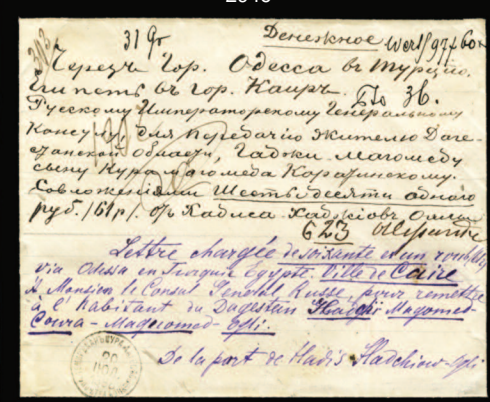 31 Gr
Денежное Wert 97 f 60
Черезъ Гор. Одесса въ Турцію.
Египетъ въ гор. Каиръ.
Русскому Императорскому Генеральному
Консулу, для передачи жителю Даге-
станской области, Гаджи-Магомеду
сыну Курамагомеда Каратинскому.
Совложеніями Шестьдесяти одного
руб. /61 р/. отъ Хадиса Хаджіовъ Оглы
623
Lettre chargée de soixante et un roub/61/
via Odessa en Turquie Egypte. Ville de Caire
A Monsieur le Consul General Russe, pour remettre
à l'habitant du Dagestan Hadgi Magomed
Coura-Magocomed-Ogli.
De la part de Hadis Hadchiow-Ogli